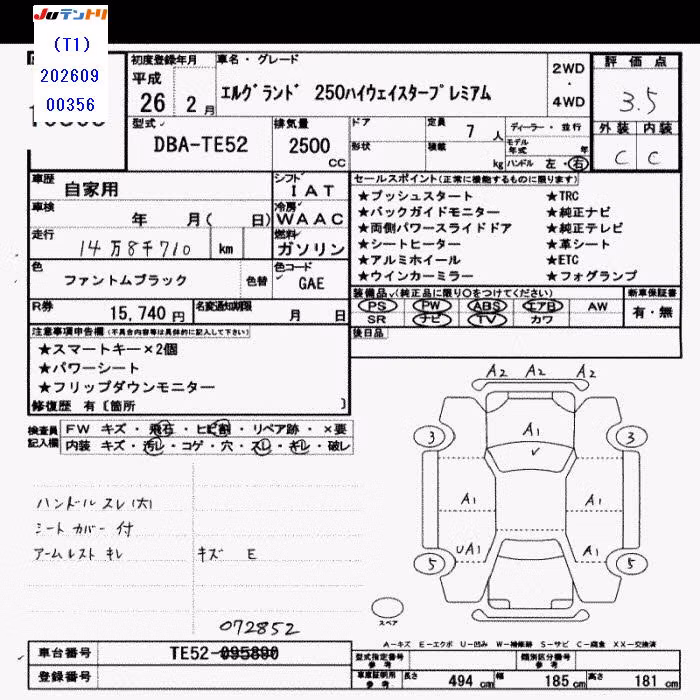 JUテントリ
(T1)
202609
00356
初度登録年月
平成
26 2月
車名・グレード
エルグランド 250ハイウェイスタープレミアム
2WD
・
4WD
評価点
3.5
外装 内装
C C
型式
DBA-TE52
排気量
2500
cc
ドア
形状
定員 7 人
積載 kg
ディーラー・並行
モデル年式 年
ハンドル 左・右
車歴 自家用
車検 年 月( 日)
走行 14万8千710 km
シフト IAT
冷房 WAAC
燃料 ガソリン
色 ファントムブラック 色替
色コード GAE
R券 15,740円
名変通知期限 月 日
セールスポイント(正常に機能するものに限ります)
★プッシュスタート ★TRC
★バックガイドモニター ★純正ナビ
★両側パワースライドドア ★純正テレビ
★シートヒーター ★革シート
★アルミホイール ★ETC
★ウインカーミラー ★フォグランプ
装備品(純正品に限り○をつけてください)
新車保証書
PS PW ABS エアB AW
SR ナビ TV カワ
有・無
後日品
注意事項申告欄(不具合内容等は具体的に記入して下さい)
★スマートキー×2個
★パワーシート
★フリップダウンモニター
修復歴 有〔箇所 〕
検査員
記入欄
FW キズ・飛石・ヒビ割・リペア跡・×要
内装 キズ・汚レ・コゲ・穴・スレ・キレ・破レ
ハンドル スレ(大)
シート カバー 付
アームレスト キレ
キズ E
A2 A2 A2
3 A1 3
A1 A1
UA1 A1
5 5
スペア
072852
車台番号 TE52-095890
登録番号
A−キズ E−エクボ U−凹み W−補修跡 S−サビ C−腐食 XX−交換済
型式指定番号
参考
類別区分番号
参考
車庫証明用
参考
長さ 494 cm 幅 185 cm 高さ 181 cm